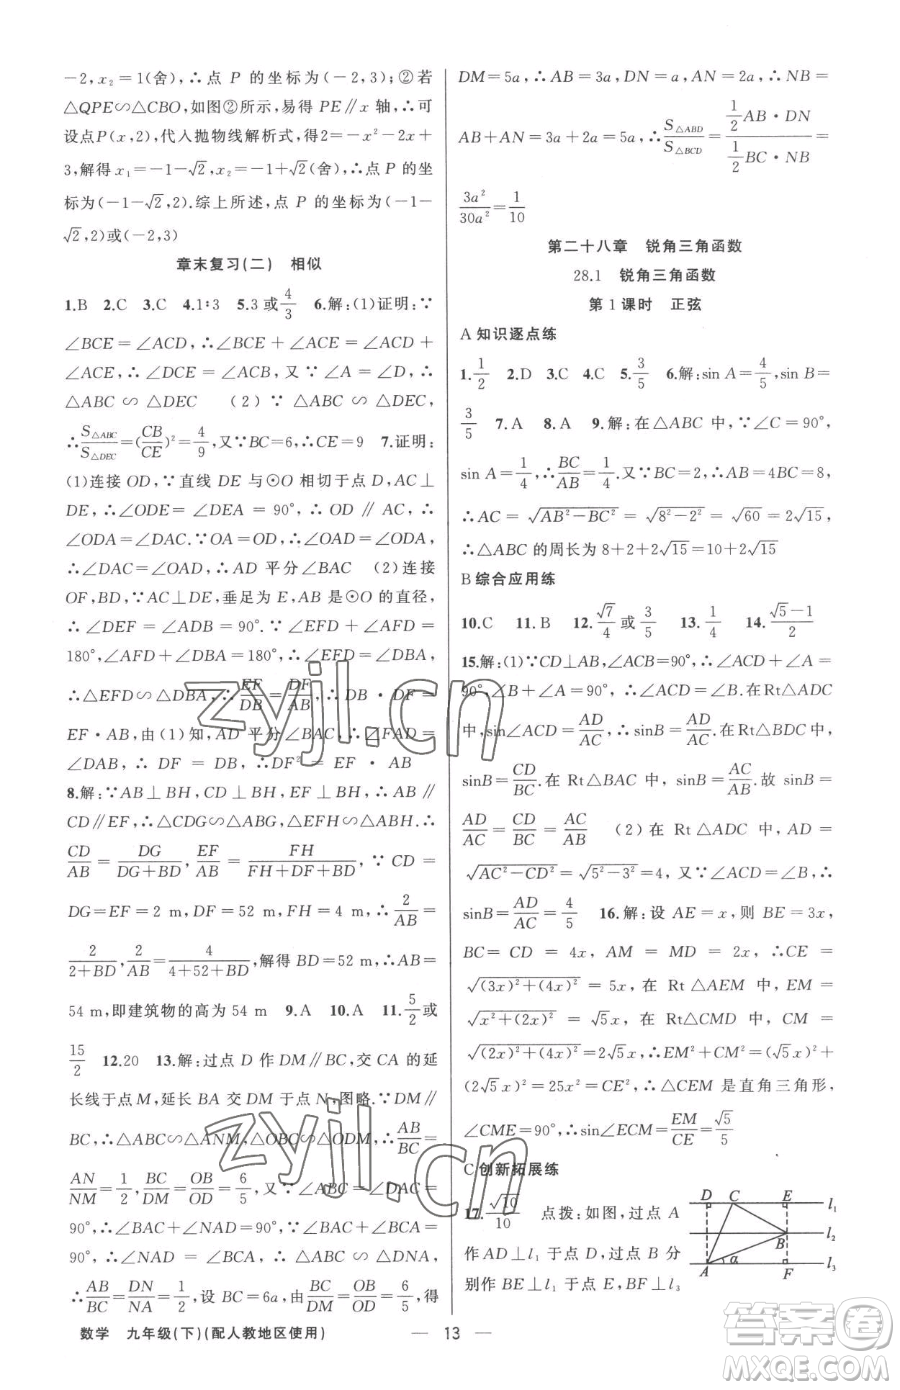 -2,x₂=1(舍),∴点 P 的坐标为(-2,3);②若
△QPE∽△CBO,如图②所示,易得 PE∥x 轴,∴可
设点P(x,2),代人抛物线解析式,得2=-x²-2x+
3,解得 x₁=-1-√2,x₂=-1+√2∴点 P 的坐
标为(-1-√2,2).综上所述,点 P 的坐标为(-1-
√2,2)或(-2,3)
章末复习(二) 相似
1.B 2.C 3.C 4.1∶3 5.3 或 4/3 6.解:(1)证明:∵
∠BCE=∠ACD,∴∠BCE+∠ACE=∠ACD+
∠ACE,∴∠DCE=∠ACB,又∵∠A=∠D,∴
△ABC∽△DEC (2)∵△ABC∽△DEC,
∴S△ABC/S△DEC=(CB/CE)²=4/9,又∵BC=6,∴CE=9 7.证明:
(1)连接 OD,∵直线 DE 与⊙O 相切于点 D,AC⊥
DE,∴∠ODE=∠DEA=90°,∴OD∥AC,∴
∠ODA=∠DAC.∵OA=OD,∴∠OAD=∠ODA,
∴∠DAC=∠OAD,∴AD 平分∠BAC (2)连接
OF,BD,∵AC⊥DE,垂足为 E,AB 是⊙O 的直径,
∴∠DEF=∠ADB=90°.∵∠EFD+∠AFD=
180°,∠AFD+∠DBA=180°,∴∠EFD=∠DBA,
∴△EFD∽△DBA,∴EF/DB=DF/AB,∴DB·DF=
EF·AB,由(1)知,AD 平分∠BAC,∴∠FAD=
∠DAB,∴DF=DB,∴DF²=EF·AB
8.解:∵AB⊥BH,CD⊥BH,EF⊥BH,∴AB∥
CD∥EF,∴△CDG∽△ABG,△EFH∽△ABH.∴
CD/AB=DG/(DG+BD),EF/AB=FH/(FH+DF+BD),又∵CD=
DG=EF=2 m,DF=52 m,FH=4 m,∴2/AB=
2/(2+BD),2/AB=4/(4+52+BD),解得 BD=52 m,AB=
54 m,即建筑物的高为 54 m 9.A 10.A 11.5/2或
15/2 12.20 13.解:过点 D 作 DM∥BC,交 CA 的延
长线于点 M,延长 BA 交 DM 于点 N,图略.∵DM∥
BC,∴△ABC∽△ANM,△OBC∽△ODM,∴AB/BC=
AN/NM=1/2,BC/DM=OB/OD=6/5,又∵∠BAC=∠DAC=
90°,∴∠BAC+∠NAD=90°,∵∠BAC+∠ABC=
90°,∴∠NAD=∠ABC,∴△ABC∽△DNA,
∴AB/BC=DN/NA=1/2,设 BC=6a,由BC/DM=OB/OD=6/5,得
DM=5a,∴AB=3a,DN=a,AN=2a,∴NB=
AB+AN=3a+2a=5a,∴S△ABD/S△BCD=(1/2 AB·DN)/(1/2 BC·NB)=
3a²/30a²=1/10
第二十八章 锐角三角函数
28.1 锐角三角函数
第 1 课时 正弦
A 知识逐点练
1.1/2 2.D 3.C 4.C 5.3/5 6.解:sin A=4/5,sin B=
3/5 7.A 8.A 9.解:在△ABC 中,∵∠C=90°,
sin A=1/4,∴BC/AB=1/4.又∵BC=2,∴AB=4BC=8,
∴AC=√(AB²-BC²)=√(8²-2²)=√60=2√15,
∴△ABC 的周长为 8+2+2√15=10+2√15
B 综合应用练
10.C 11.B 12.√7/4或3/5 13.1/4 14.(√5-1)/2
15.解:(1)∵CD⊥AB,∠ACB=90°,∴∠ACD+∠A=
90°,∠B+∠A=90°,∴∠ACD=∠B.在Rt△ADC
中,sin∠ACD=AD/AC,∴sinB=AD/AC.在 Rt△BDC 中,
sinB=CD/BC.在 Rt△BAC 中,sinB=AC/AB.故 sinB=
AD/AC=CD/BC=AC/AB (2)在 Rt△ADC 中,AD=
√(AC²-CD²)=√(5²-3²)=4,又∵∠ACD=∠B,∴
sinB=AD/AC=4/5 16.解:设 AE=x,则 BE=3x,
BC=CD=4x,AM=MD=2x,∴CE=
√((3x)²+(4x)²)=5x,在 Rt△AEM 中,EM=
√(x²+(2x)²)=√5x,在 Rt△CMD 中,CM=
√((2x)²+(4x)²)=2√5x,∴EM²+CM²=(√5x)²+
(2√5x)²=25x²=CE²,∴△CEM 是直角三角形,
∠CME=90°,∴sin∠ECM=EM/CE=√5/5
C 创新拓展练
17.√10/10 点拨:如图,过点 A
作 AD⊥l₁于点 D,过点 B 分
别作 BE⊥l₁于点 E,BF⊥l₃
D C E l₁
B l₂
A α F l₃
数学 九年级(下)(配人教地区使用) — 13 —
zyjl.cn
zyjl.cn
答案圈
MXQE.COM